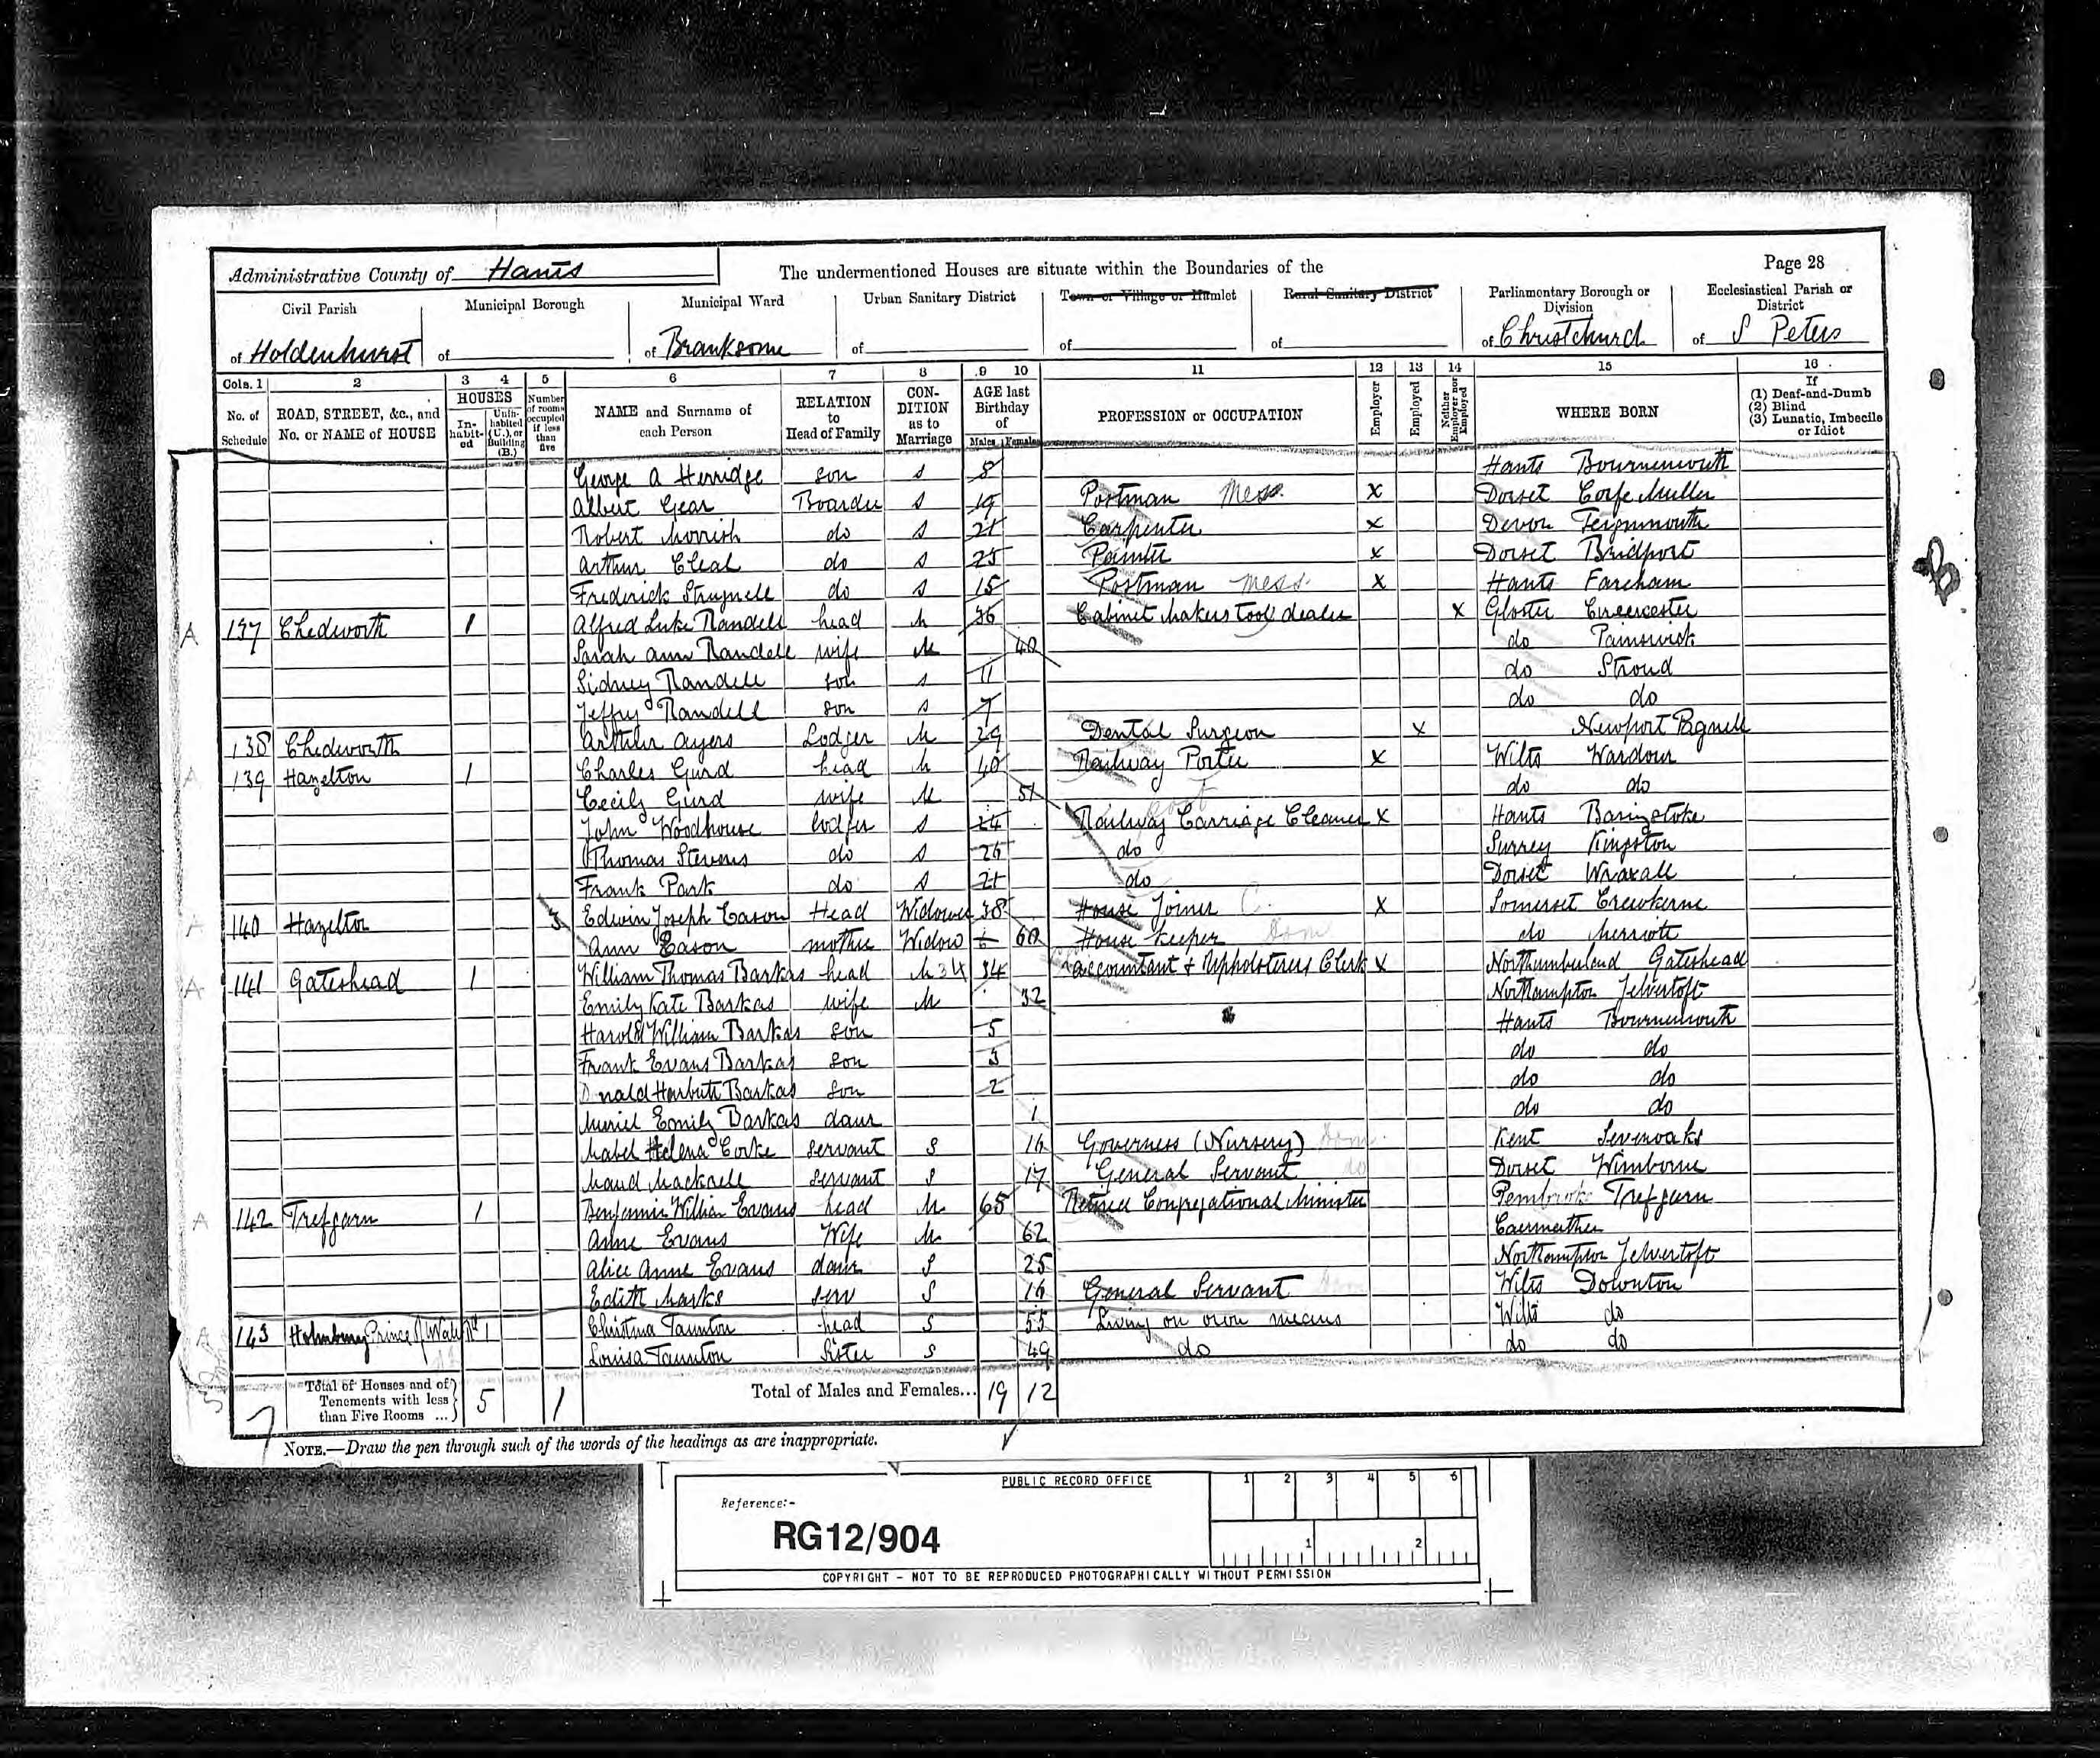 Administrative County of Hants The undermentioned Houses are situate within the Boundaries of the Page 28
Civil Parish Municipal Borough Municipal Ward Urban Sanitary District Town or Village or Hamlet Rural Sanitary District Parliamentary Borough or Division Ecclesiastical Parish or District
of Holdenhurst of of Branksome of of of of Christchurch of S Peters
Cols. 1 2 3 4 5 6 7 8 9 10 11 12 13 14 15 16
No. of Schedule ROAD, STREET, &c., and No. or NAME of HOUSE HOUSES In-habit-ed Unin-habited (U.), or Building (B.) Number of rooms occupied if less than five NAME and Surname of each Person RELATION to Head of Family CON-DITION as to Marriage AGE last Birthday of Males Females PROFESSION or OCCUPATION Employer Employed Neither Employer nor Employed WHERE BORN If (1) Deaf-and-Dumb (2) Blind (3) Lunatic, Imbecile or Idiot
George A Herridge son s 8 Hants Bournemouth
Albert Gear Boarder s 19 Postman Mess. x Dorset Corfe Muller
Robert Morrish do s 21 Carpenter x Devon Teignmouth
Arthur Cleal do s 25 Painter x Dorset Bridport
Frederick Strugnell do s 15 Postman mess. x Hants Fareham
A 137 Chedworth 1 Alfred Luke Randell head M 36 Cabinet Makers tool dealer x Gloster Cirencester
Sarah Ann Randell wife M 40 do Painswick
Sidney Randell son s 11 do Stroud
Jeffry Randell son s 7 do do
138 Chedworth Arthur Ayers Lodger M 29 Dental Surgeon x Newport Pagnell
A 139 Hazelton 1 Charles Gurd head M 40 Railway Porter x Wilts Wardour
Cecily Gurd wife M 51 do do
John Woodhouse lodger s 24 Railway Carriage Cleaner x Hants Basingstoke
Thomas Stevens do s 26 do Surrey Kingston
Frank Park do s 21 do Dorset Wraxall
A 140 Hazelton 3 Edwin Joseph Eason Head Widower 38 House Joiner C. x Somerset Crewkerne
Ann Eason mother Widow 60 House Keeper Dom do Merriott
A 141 Gateshead 1 William Thomas Barkas head M 34 34 Accountant & Upholsterers Clerk x Northumberland Gateshead
Emily Kate Barkas wife M 32 Northampton Yelvertoft
Harold William Barkas son 5 Hants Bournemouth
Frank Evans Barkas son 3 do do
Donald Harbutt Barkas son 2 do do
Muriel Emily Barkas daur 1 do do
Mabel Helena Corke servant S 16 Governess (Nursery) Dom Kent Sevenoaks
Maud Macknell servant S 17 General Servant do Dorset Wimborne
A 142 Trefgarn 1 Benjamin William Evans head M 65 Retired Congregational Minister Pembroke Trefgarn
Anne Evans Wife M 62 Caermarthen
Alice Anne Evans daur S 25 Northampton Yelvertoft
Edith Marks serv S 16 General Servant Dom Wilts Downton
A 143 Holmbury Prince of Wales Rd 1 Christina Taunton head S 55 Living on own means Wilts do
Louisa Taunton Sister S 49 do do do
7 Total of Houses and of Tenements with less than Five Rooms ... 5 1 Total of Males and Females... 19 12
NOTE.—Draw the pen through such of the words of the headings as are inappropriate.
PUBLIC RECORD OFFICE 1 2 3 4 5 6
Reference:-
RG12/904
1 2
COPYRIGHT - NOT TO BE REPRODUCED PHOTOGRAPHICALLY WITHOUT PERMISSION